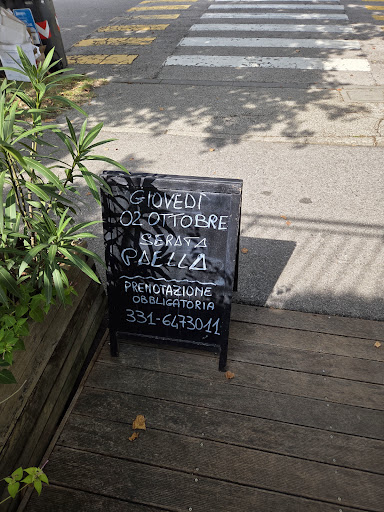 GIOVEDÌ
02 OTTOBRE
SERATA
PAELLA
PRENOTAZIONE
OBBLIGATORIA
331-6473011